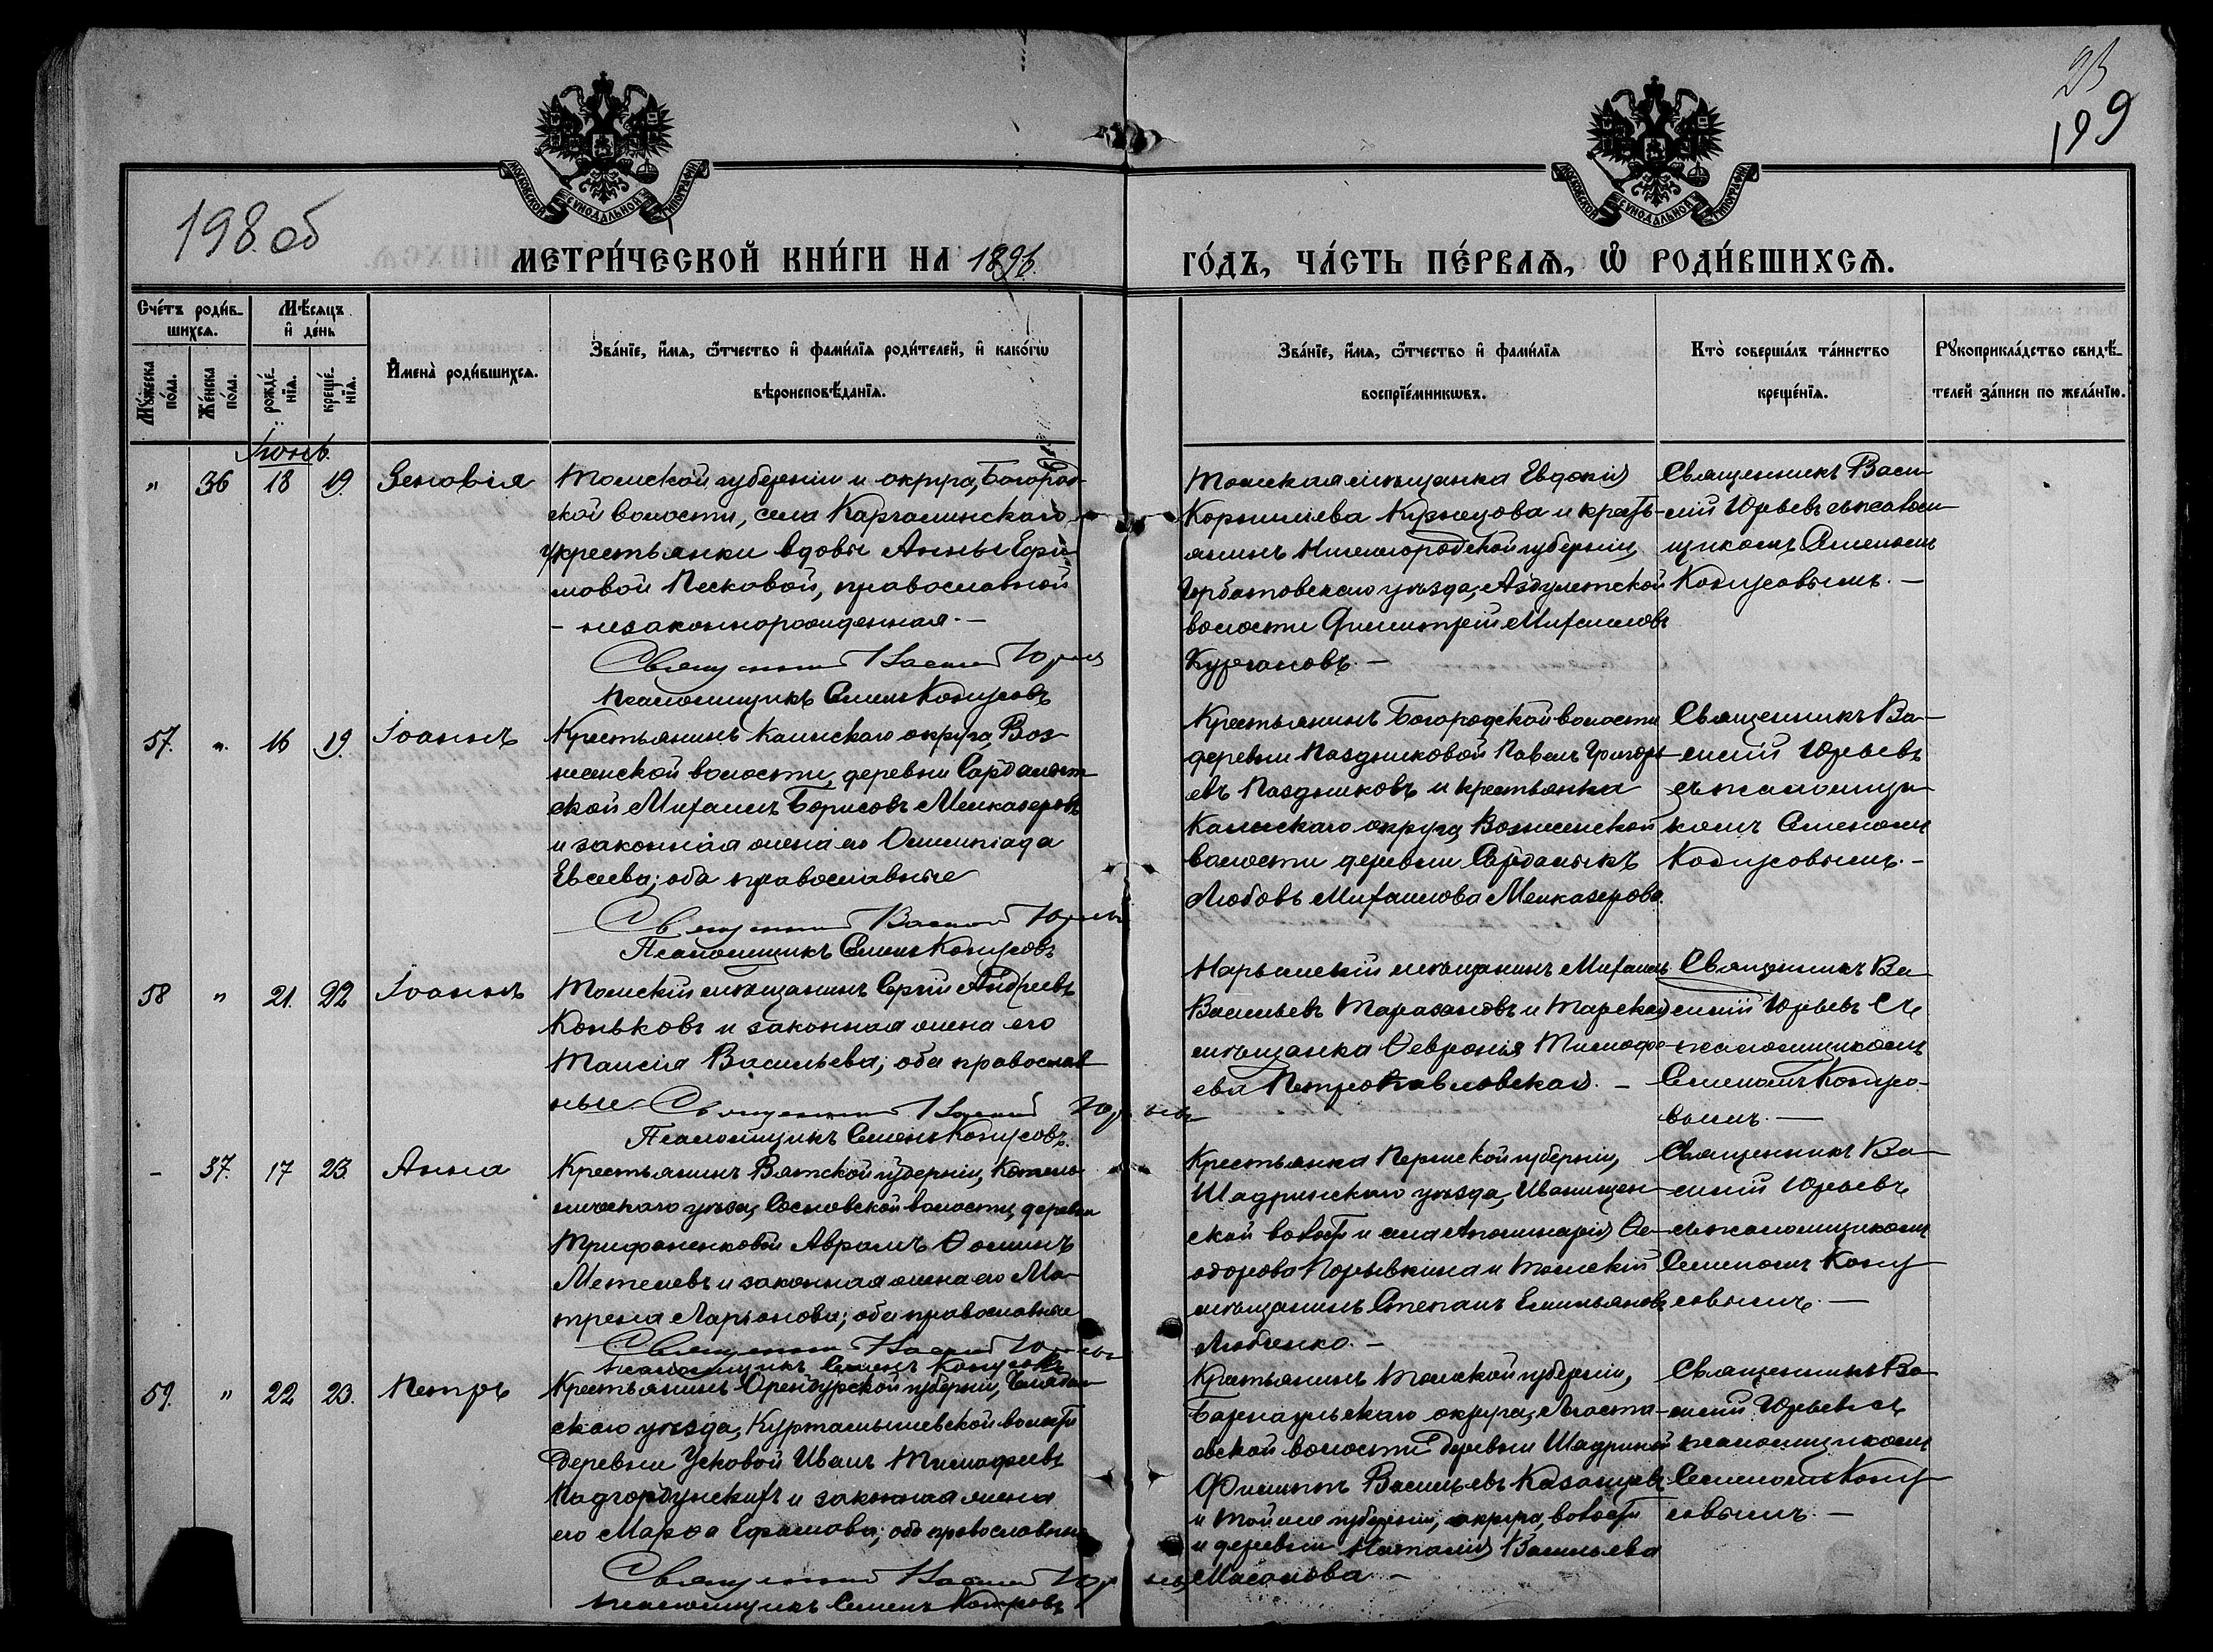 198 об
23
199
МОСКОВСКОЙ СѴНОДАЛЬНОЙ ТИПОГРАФІИ
МОСКОВСКОЙ СѴНОДАЛЬНОЙ ТИПОГРАФІИ
МЕТРИ́ЧЕСКОЙ КНИ́ГИ НА 1896.
ГО́ДЪ, ЧА́СТЬ ПЕ́РВАѦ, Ѡ҆ РОДИ́ВШИХСѦ.
Сче́тъ роди́в-
шихсѧ.
Мѣ́сѧцъ
и҆ де́нь
Мꙋ́жеска
по́ла.
Же́нска
по́ла.
рожде́-
нїѧ.
креще́-
нїѧ.
И҆мена̀ роди́вшихсѧ.
Зва́нїе, и҆́мѧ, ѻ҆́тчество и҆ фами́лїѧ роди́телей, и҆ како́гѡ
вѣроисповѣ́данїѧ.
Зва́нїе, и҆́мѧ, ѻ҆́тчество и҆ фами́лїѧ
воспрїе́мникѡвъ.
Кто̀ соверша́лъ та́инство
креще́нїѧ.
Рꙋкоприкла́дство свидѣ́-
телей за́писи по жела́нїю.
Іюнь.
" 36 18 19. Зеновія
Томской губерніи и округа, Богород-
ской волости, села Каргалинскаго
крестьянки вдовы Анны Ефи-
мовой Песковой, православной
- незаконнорожденная. -
Священникъ Василій Юрьевъ
Псаломщикъ Семенъ Кожусовъ
Томская мѣщанка Евдокія
Корнилиева Кузнецова и кресть-
янинъ Нижегородской губерніи,
Горбатовскаго уѣзда,
волости Димитрій Михаиловъ
Кургановъ. -
Священникъ Васи-
лій Юрьевъ съ псалом-
щикомъ Семеномъ
Кожусовымъ. -
57. ". 16 19. Іоаннъ
Крестьянинъ Каинскаго округа, Воз-
несенской волости, деревни
ской Михаилъ Борисовъ Менказеровъ
и законная жена его Олимпіада
Евсеева; оба православные
Священникъ Василій Юрьевъ
Псаломщикъ Семенъ Кожусовъ
Крестьянинъ Богородской волости
деревни Паздниковой Павелъ Григорь-
евъ Паздниковъ и крестьянка
Каинскаго округа, Вознесенской
волости деревни
Любовь Михаилова Менказерова.
Священникъ Ва-
силій Юрьевъ
съ псаломщи-
комъ Семеномъ
Кожусовымъ. -
58 " 21. 22 Іоаннъ
Томскій мѣщанинъ Сергій Андреевъ
Коньковъ и законная жена его
Таисія Васильева; оба православ-
ные. Священникъ Василій Юрьевъ
Псаломщикъ Семенъ Кожусовъ.
Нарымскій мѣщанинъ Михаилъ
Васильевъ Таразановъ и Тарская
мѣщанка Ѳевронія Тимофе-
ева Петропавловская. -
Священникъ Ва-
силій Юрьевъ съ
псаломщикомъ
Семеномъ Кожусо-
вымъ. -
- 37. 17 23. Анна
Крестьянинъ Вятской губерніи, Котель-
ническаго уѣзда, Сосновской волости, деревни
Трифоненковой Аврамъ Ѳоминъ
Метелевъ и законная жена его Ма-
трена Ларіонова; оба православные
Священникъ Василій Юрьевъ
Псаломщикъ Семенъ Кожусовъ
Крестьянка Пермской губерніи,
Шадринскаго уѣзда, Иванищен-
ской волости и села Аполинарія Ѳе-
одорова Порывкина и Томскій
мѣщанинъ Степанъ Емильяновъ
Любченко. -
Священникъ Ва-
силій Юрьевъ
съ псаломщикомъ
Семеномъ Кожу-
совымъ. -
59. " 22 23. Петръ
Крестьянинъ Оренбургской губерніи, Челябин-
скаго уѣзда, Куртамышевской волости
деревни Усковой Иванъ Тимофеевъ
Надгорбунскихъ и законная жена
его Марѳа Ефимова; оба православные
Священникъ Василій Юрьевъ
Псаломщикъ Семенъ Кожусовъ
Крестьянинъ Томской губерніи,
Барнаульскаго округа, Легоста-
евской волости деревни Шадриной
Филиппъ Васильевъ Казанцевъ
и той же губерніи, округа, волости
и деревни Наталія Васильева
Масалова. -
Священникъ Ва-
силій Юрьевъ съ
псаломщикомъ
Семеномъ Кожу-
совымъ. -